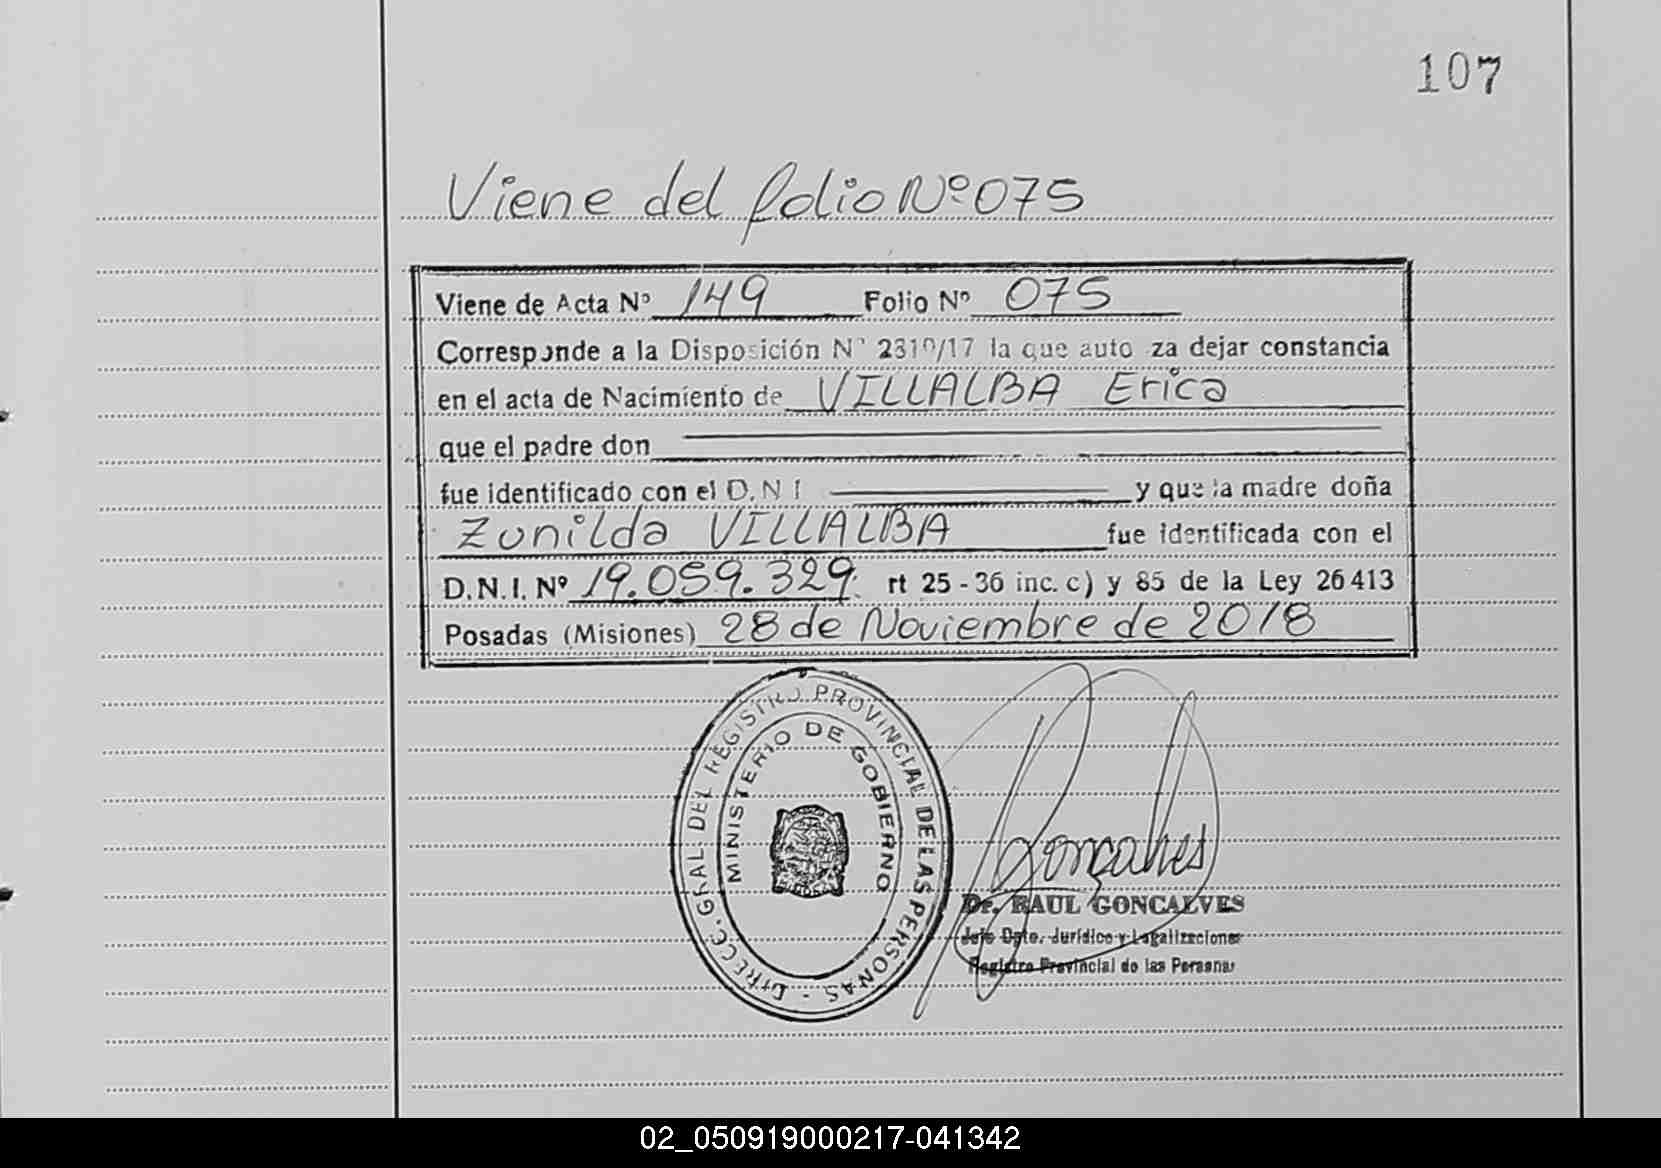 107
Viene del folio Nº 075
Viene de Acta Nº 149 Folio Nº 075
Corresponde a la Disposición Nº 2310/17 la que auto za dejar constancia
en el acta de Nacimiento de VILLALBA Erica
que el padre don
fue identificado con el D.N.I y que la madre doña
Zunilda VILLALBA fue identificada con el
D.N.I. Nº 19.059.329 rt 25-36 inc. c) y 85 de la Ley 26413
Posadas (Misiones) 28 de Noviembre de 2018
DIRECC. GRAL DEL REGISTRO PROVINCIAL DE LAS PERSONAS -
MINISTERIO DE GOBIERNO
Gonçalves
Dr. RAUL GONCALVES
Jefe Dpto. Jurídico y Legalizaciones
Registro Provincial de las Personas
02_050919000217-041342